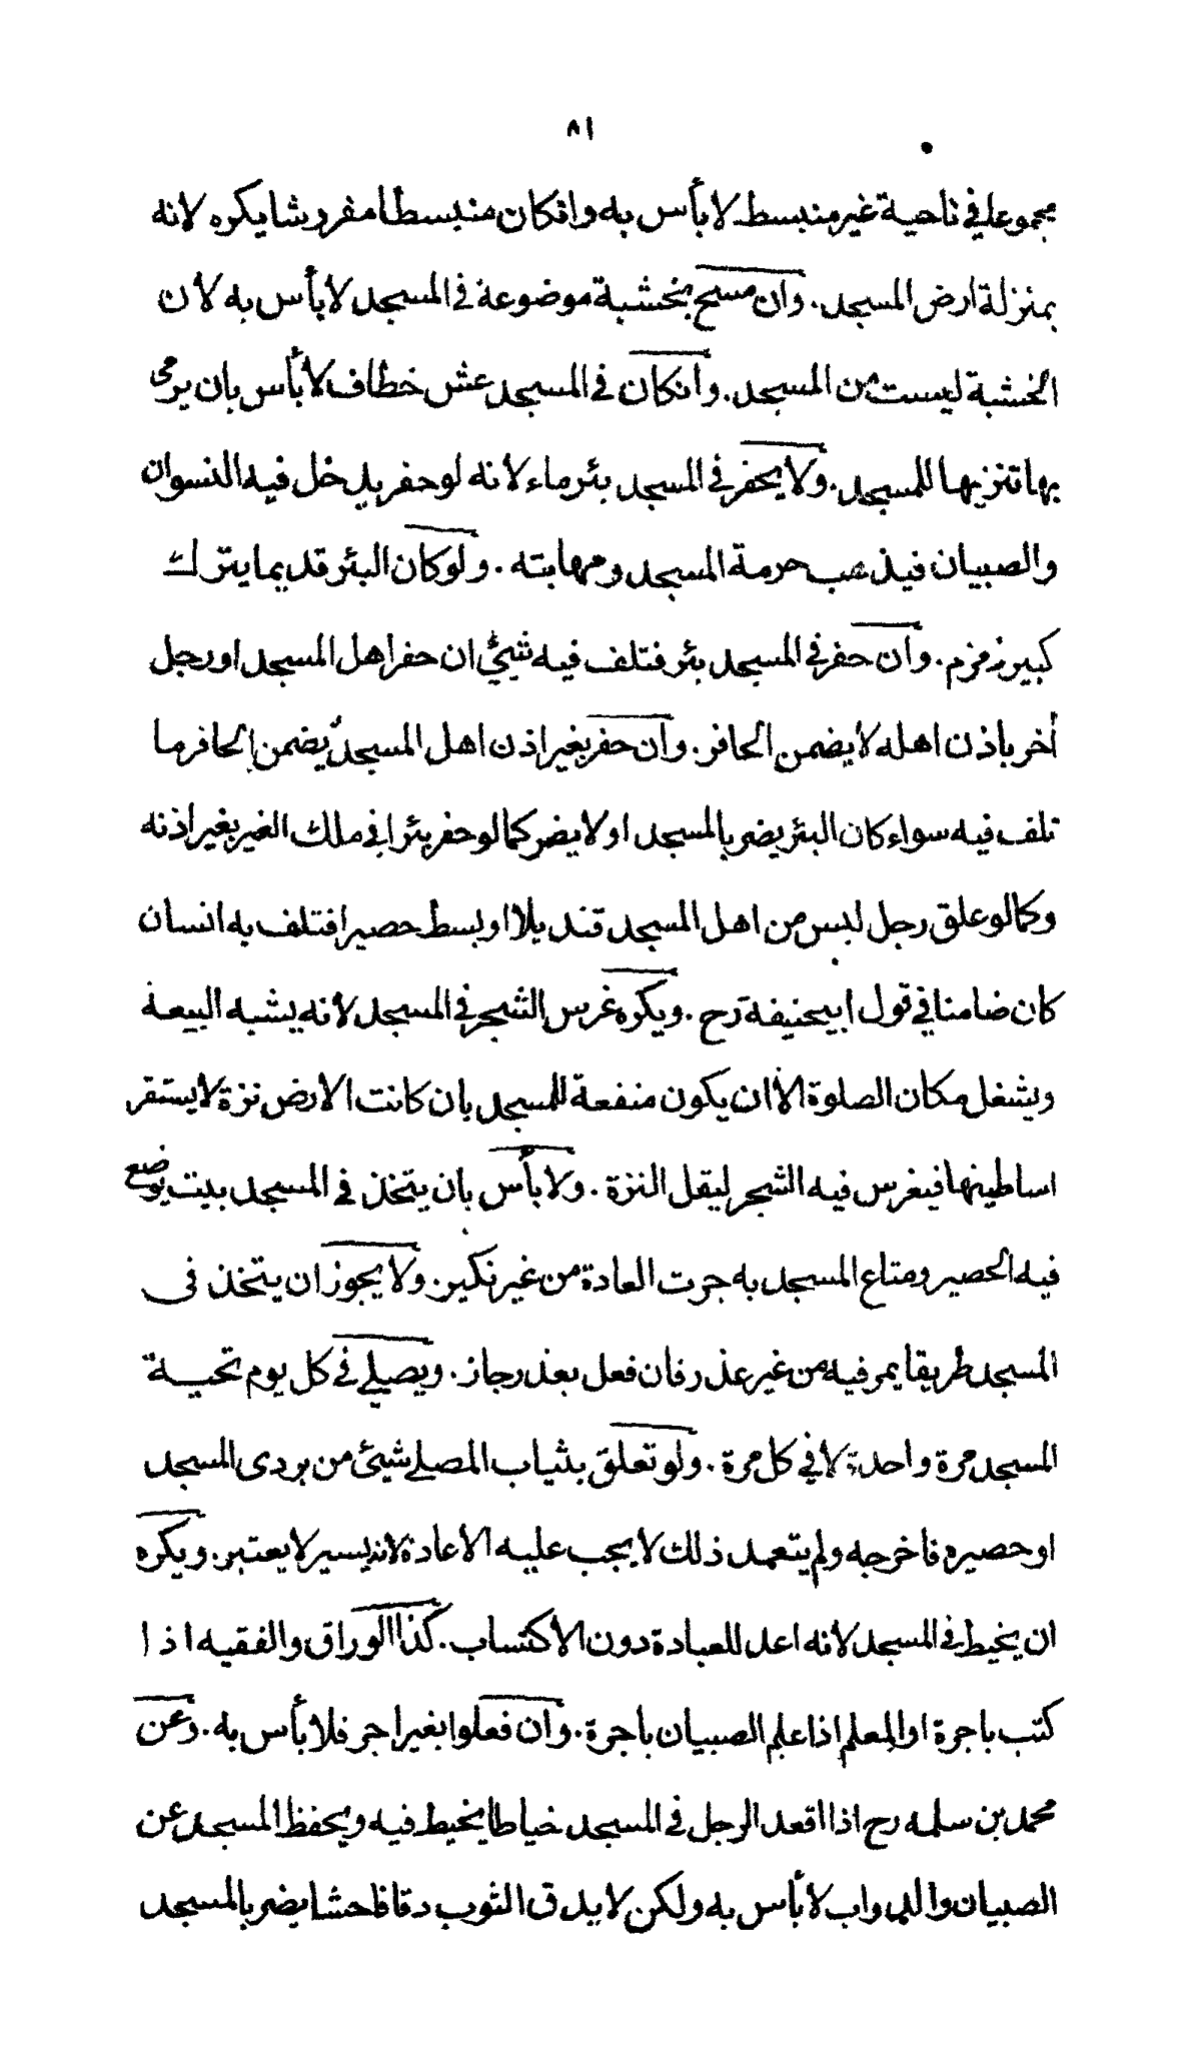 ٨١
مجموعا في ناحية غير منبسط لا بأس به وانكان منبسطا مفروشا يكره لانه
بمنزلة ارض المسجد. وان مسح بخشبة موضوعة في المسجد لا بأس به لان
الخشبة ليست من المسجد. وانكان في المسجد عش خطاف لا بأس بان يرمى
بها تنزيها للمسجد. ولا يحفر في المسجد بئر ماء لانه لو حفر يدخل فيه النسوان
والصبيان فيذهب حرمة المسجد ومهابته. ولو كان البئر قديما يترك
كبير زمزم. وان حفر في المسجد بئر فتلف فيه شيئ ان حفر اهل المسجد او رجل
أخر باذن اهله لا يضمن الحافر. وان حفر بغير اذن اهل المسجد يضمن الحافر ما
تلف فيه سواء كان البئر يضر بالمسجد او لا يضر كما لو حفر بئرا في ملك الغير بغير اذنه
وكما لو علق رجل ليس من اهل المسجد قنديلا او بسط حصيرا فتلف به انسان
كان ضامنا في قول ابيحنيفة رح. ويكره غرس الشجر في المسجد لانه يشبه البيعة
ويشغل مكان الصلوة الا ان يكون منفعة للمسجد بان كانت الارض نزة لا يستقر
اساطينها فيغرس فيه الشجر ليقل النزة. ولا بأس بان يتخذ في المسجد بيت يوضع
فيه الحصير ومتاع المسجد به جرت العادة من غير نكير. ولا يجوز ان يتخذ فى
المسجد طريقا يمر فيه من غير عذر فان فعل بعذر جاز. ويصلي في كل يوم تحية
المسجد مرة واحدة لا في كل مرة. ولو تعلق بثياب المصلي شيئ من بردى المسجد
او حصيره فاخرجه ولم يتعمد ذلك لا يجب عليه الاعادة لانه يسير لا يعتبر. ويكره
ان يخيط في المسجد لانه اعد للعبادة دون الاكتساب. كذا الوراق والفقيه اذا
كتب باجرة او المعلم اذا علم الصبيان باجرة. وان فعلوا بغير اجر فلا بأس به. وعن
محمد بن سلمه رح اذا اقعد الرجل في المسجد خياطا يخيط فيه ويحفظ المسجد عن
الصبيان والدواب لا بأس به ولكن لا يدق الثوب دقا فاحشا يضر بالمسجد